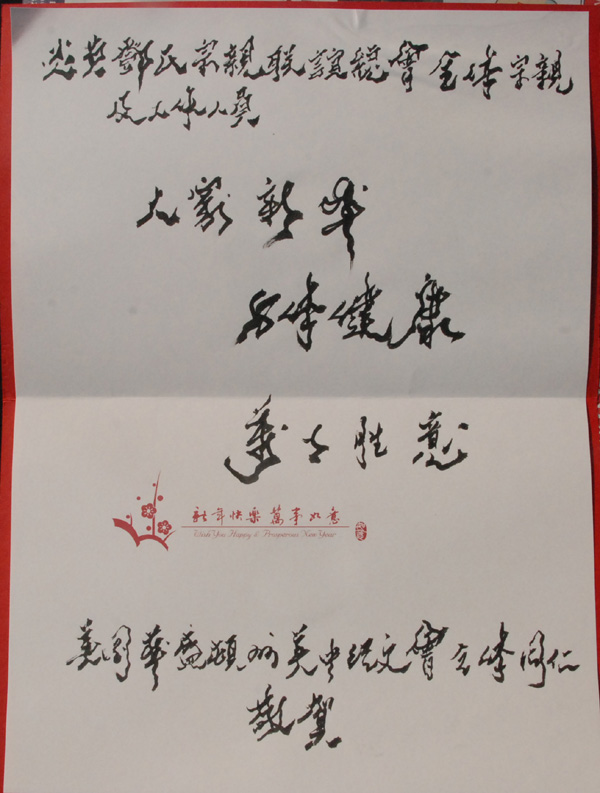 炎黄鄧氏宗親联誼總會全体宗親
及工作人員
大家新年
身体健康
萬事胜意
新年快樂萬事如意
Wish You Happy & Prosperous New Year
美國華盛頓州英中文會全体同仁
敬賀